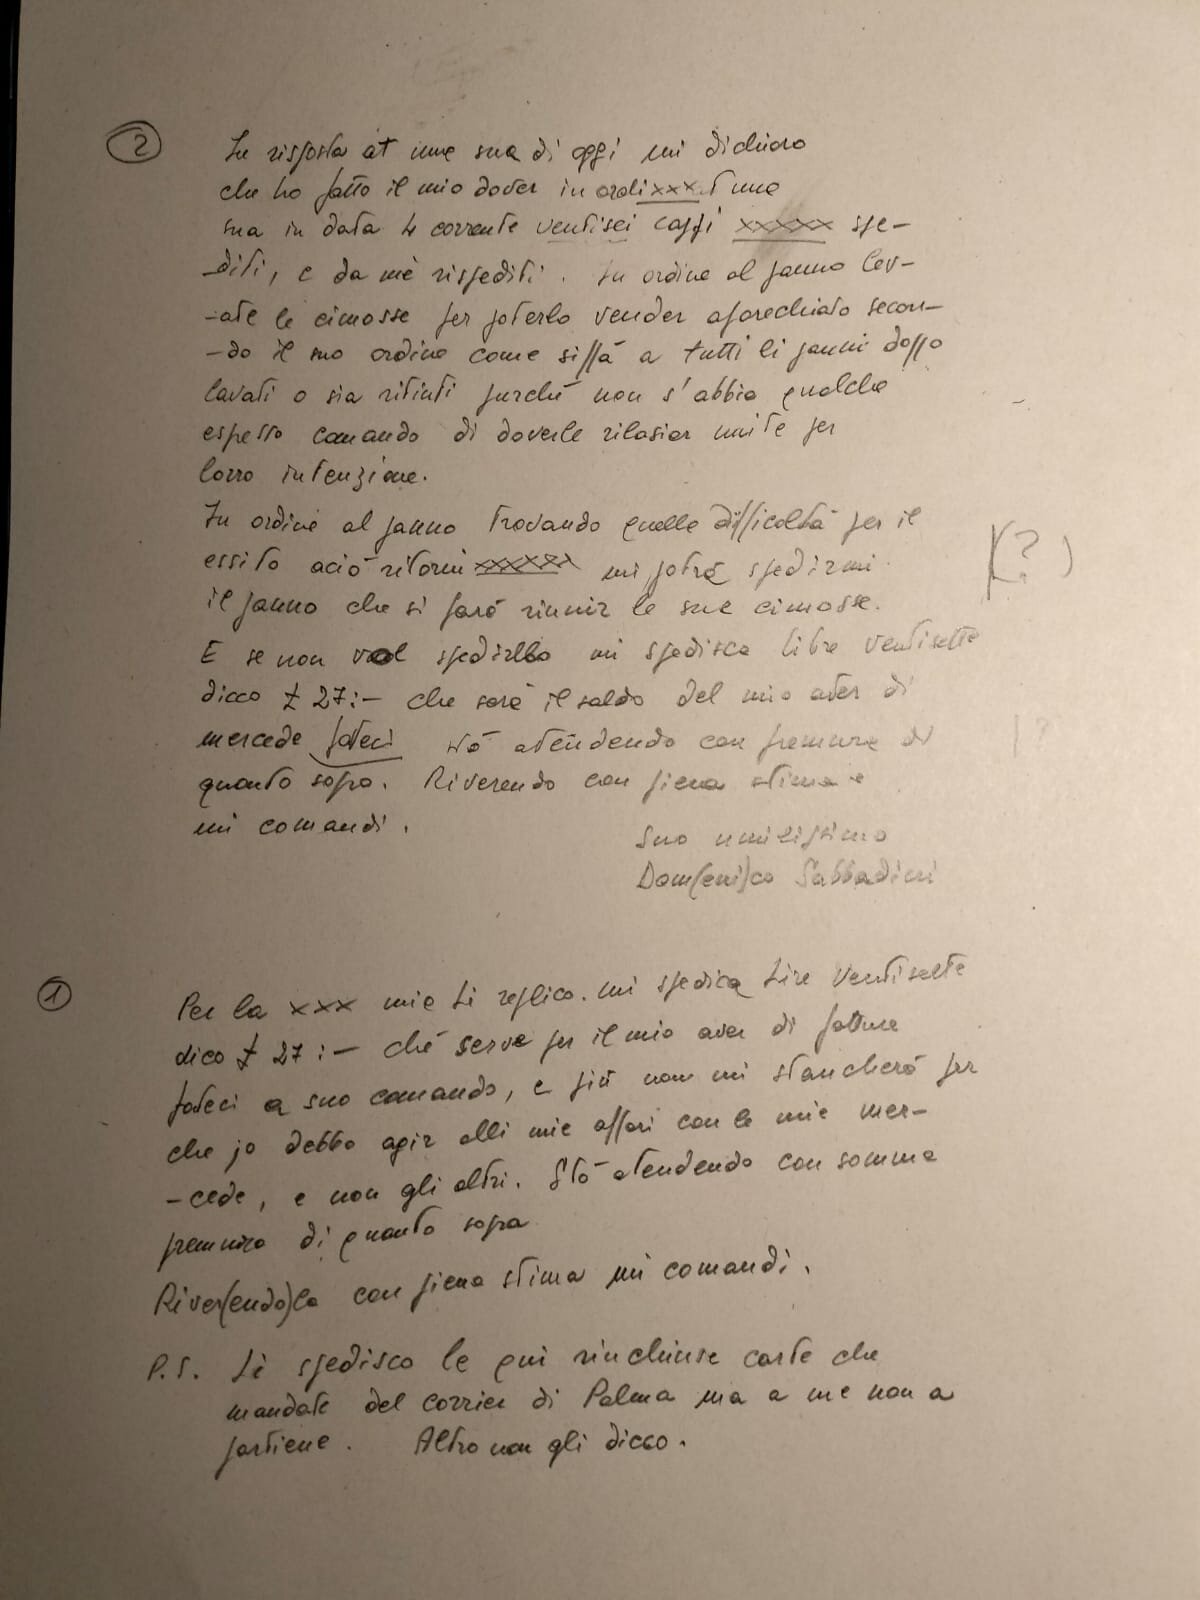 2
In risposta at une sua di oggi mi dichiaro
che ho fatto il mio dover in ordixxx t une
sua in data 4 corrente ventisei cappi xxxxx spe-
-diti, e da mè rispediti. In ordine al panno lev-
-ate le cimosse per poterlo vender aparechiato secon-
-do il suo ordine come si fà a tutti li panni doppo
lavati o sia ritinti purché non s'abbia qualche
espesso comando di doverle rilasiar unite per
lorro intenzione.
In ordine al panno trovando quelle difficoltà per il
essito aciò ritorni xxxxxx mi potrà spedirmi
il panno che si farà riunir le sue cimosse.
(?)
E se non vol spedirllo mi spedisca libre ventisette
dicco £ 27:- che sarà il saldo del mio aver di
mercede fateci stò atendendo con premura di
?
quanto sopra. Riverendo con piena stima e
mi comandi.
Suo umilissimo
Dom(eni)co Sabbadini
1
Per la xxx mie Li replico. mi spedica Lire ventisette
dico £ 27:- ché serve per il mio aver di fatture
fateci a suo comando, e più non mi stancherò per
che jo debbo agir alli mie affari con le mie mer-
-cede, e non gli altri. Stò atendendo con somma
premura di quanto sopra
River(endo)la con piena stima mi comandi.
P.S. Li spedisco le qui rinchiuse carte che
mandate del corrier di Palma ma a me non a
partiene. Altro non gli dicco.